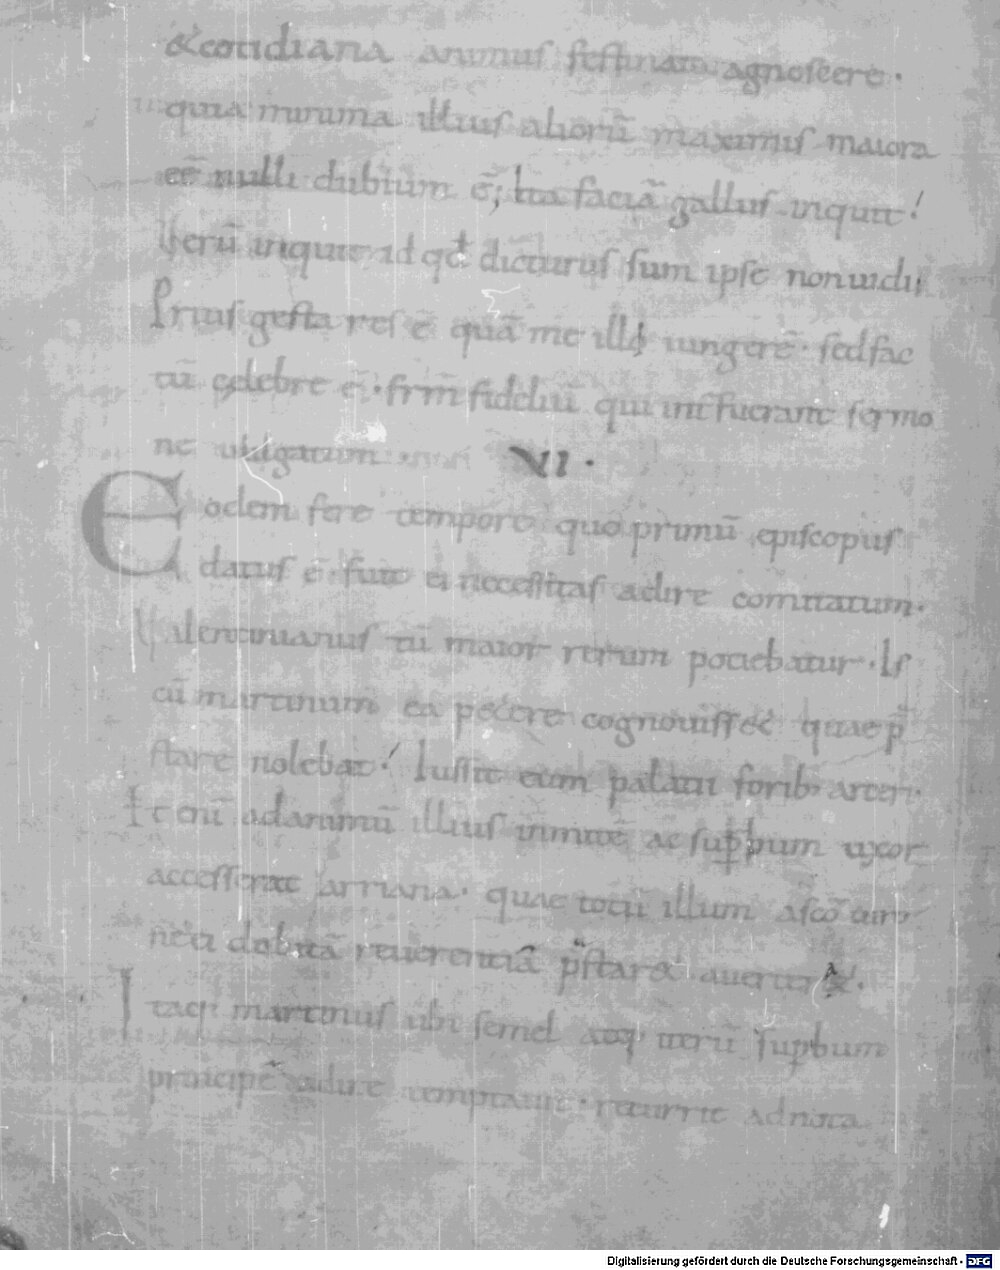 &cotidiana animus festinat agnoscere·
quia minima illius aliorū maximis maiora
eē nulli dubium ē; Ita faciā gallus inquit!
Verū inquit id qđ dicturus sum ipse nonuidi
Prius gesta res ē quā me illi iungerē· sedfac
tū celebre ē· frm̄ fideliū qui int̄fuerant sermo
ne uulgatum VI·
Eodem fere tempore quo primū episcopus
datus ē· fuit ei necessitas adire comitatum·
Valentinianus tū maior rerum potiebatur· Is
cū martinum ea petere cognouiss& quae p̄
stare nolebat! Iussit eum palatii forib; arceri·
Et eni̅ adanimū illius inmitē ac sup̱bum uxor
accesserat arriana· quae totū illum a sc̄o uiro
ne ei debitā reuerentiā p̄star& auerter&·
Itaq; martinus ubi semel atq; iterū sup̱bum
principē adire temptauit· recurrit adnota